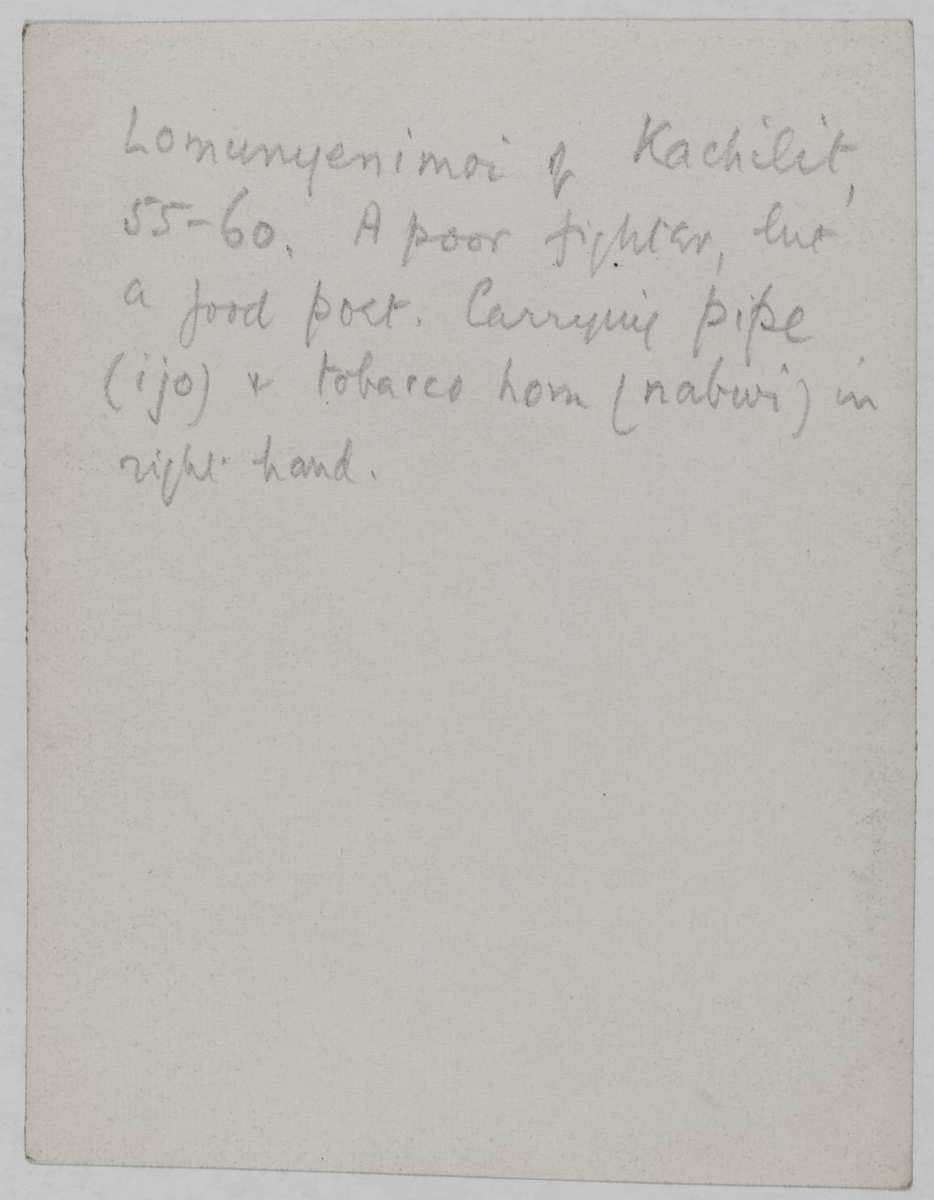 Lomunyenimoi of Kachilit,
55-60. A poor fighter, but
a good poet. Carrying pipe
(ijo) & tobacco horn (nabwi) in
right hand.